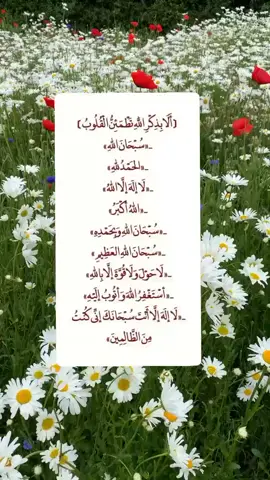 ﴿ أَلَا بِذِكْرِ اللَّهِ تَطْمَئِنُّ الْقُلُوبُ ﴾
_«سُبْحَانَ اللهِ»
_«الحَمْدُ للهِ»
_«لَا إِلَهَ إِلَّا اللهُ»
_«اللهُ أَكْبَرُ»
_«سُبْحَانَ اللهِ وَبِحَمْدِهِ»
_«سُبْحَانَ اللهِ العَظِيمِ»
_«لَا حَوْلَ وَلَا قُوَّةَ إِلَّا بِاللهِ»
_«أَسْتَغْفِرُ اللهَ وَأَتُوبُ إِلَيْهِ»
_«لَا إِلَهَ إِلَّا أَنْتَ سُبْحَانَكَ إِنِّي كُنْتُ
مِنَ الظَّالِمِينَ»